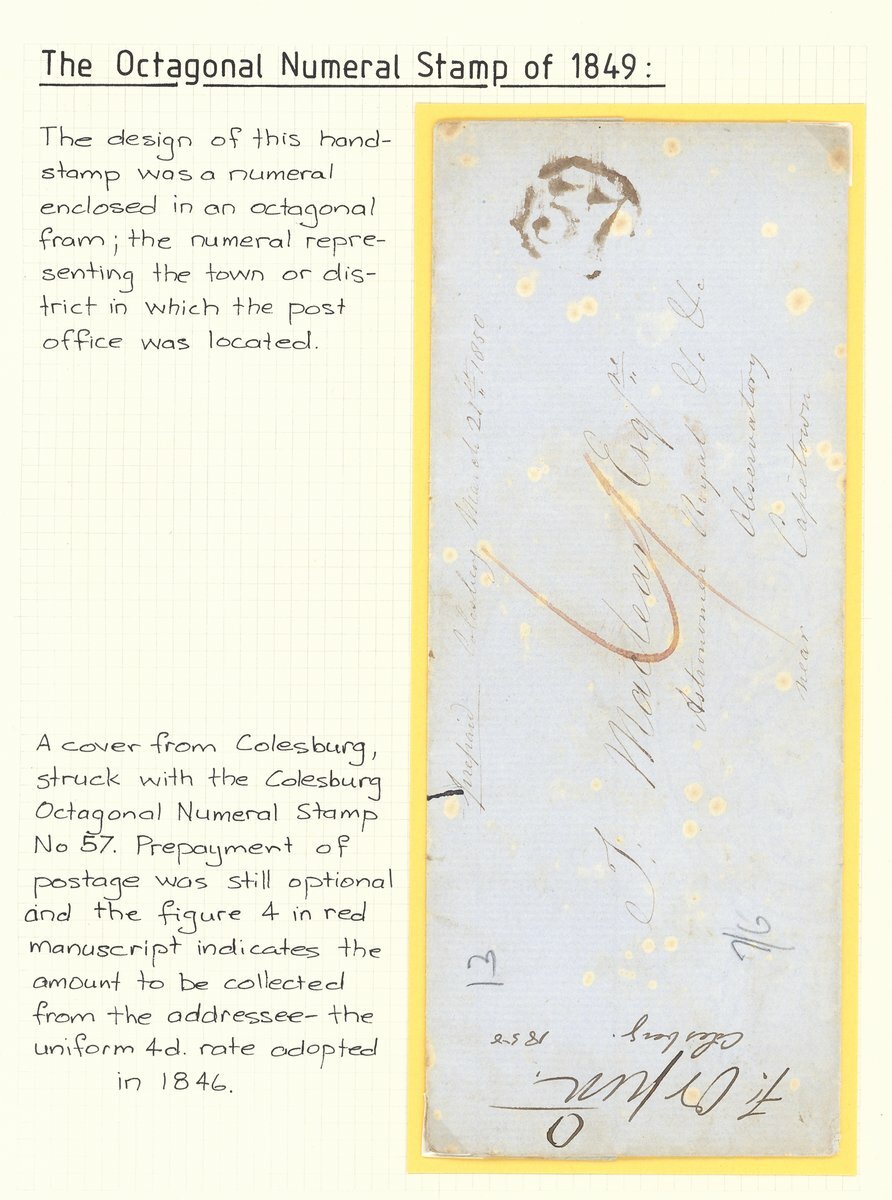 The Octagonal Numeral Stamp of 1849:
The design of this hand-
stamp was a numeral
enclosed in an octagonal
fram; the numeral repre-
senting the town or dis-
trict in which the post
office was located.
A cover from Colesburg,
struck with the Colesburg
Octagonal Numeral Stamp
No 57. Prepayment of
postage was still optional
and the figure 4 in red
manuscript indicates the
amount to be collected
from the addressee- the
uniform 4d. rate adopted
in 1846.
57
Prepaid Colesberg March 21st 1850
4
T. Maclear Esqre
Astronomer Royal &c &c
Observatory
near Capetown
13
7/6
F. Orpen
Colesberg. 1850
0